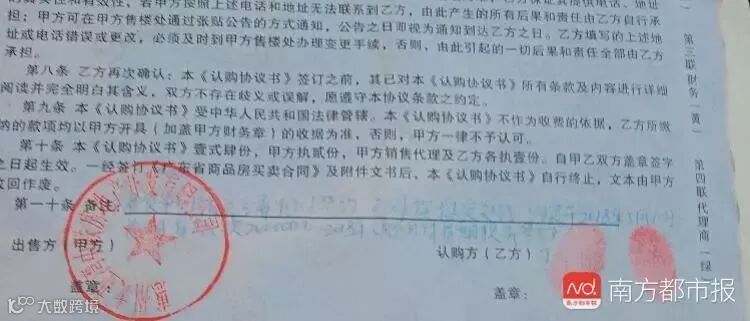 的真实性和有效性，若甲方按照上述电话和地址无法联系到乙方，由此产生的所有后果和责任由乙方自行承
担；甲方可在甲方售楼处通过张贴公告的方式通知，公告之日即视为通知到达乙方之日。乙方填写的上述地
址或电话错误或更改，必须及时到甲方售楼处办理变更手续，否则，由此引起的一切后果和责任全部由乙方
承担。
第八条 乙方再次确认：本《认购协议书》签订之前，其已对本《认购协议书》所有条款及内容进行详细
阅读并完全明白其含义，双方不存在歧义或误解，愿遵守本协议条款之约定。
第九条 本《认购协议书》受中华人民共和国法律管辖。本《认购协议书》不作为收费的依据，乙方所缴
纳的款项均以甲方开具（加盖甲方财务章）的收据为准，否则，甲方一律不予认可。
第十条 本《认购协议书》壹式肆份，甲方执贰份，甲方销售代理及乙方各执壹份。自甲乙双方盖章签字
之日起生效。一经签订《广东省商品房买卖合同》及附件文书后、本《认购协议书》自行终止，文本由甲方
收回作废。
第一十条 备注：
出售方（甲方）
认购方（乙方）
盖章：
盖章：
第三联财务（黄）
第四联代理商（绿）
大数跨境
Nd.
南方都市报